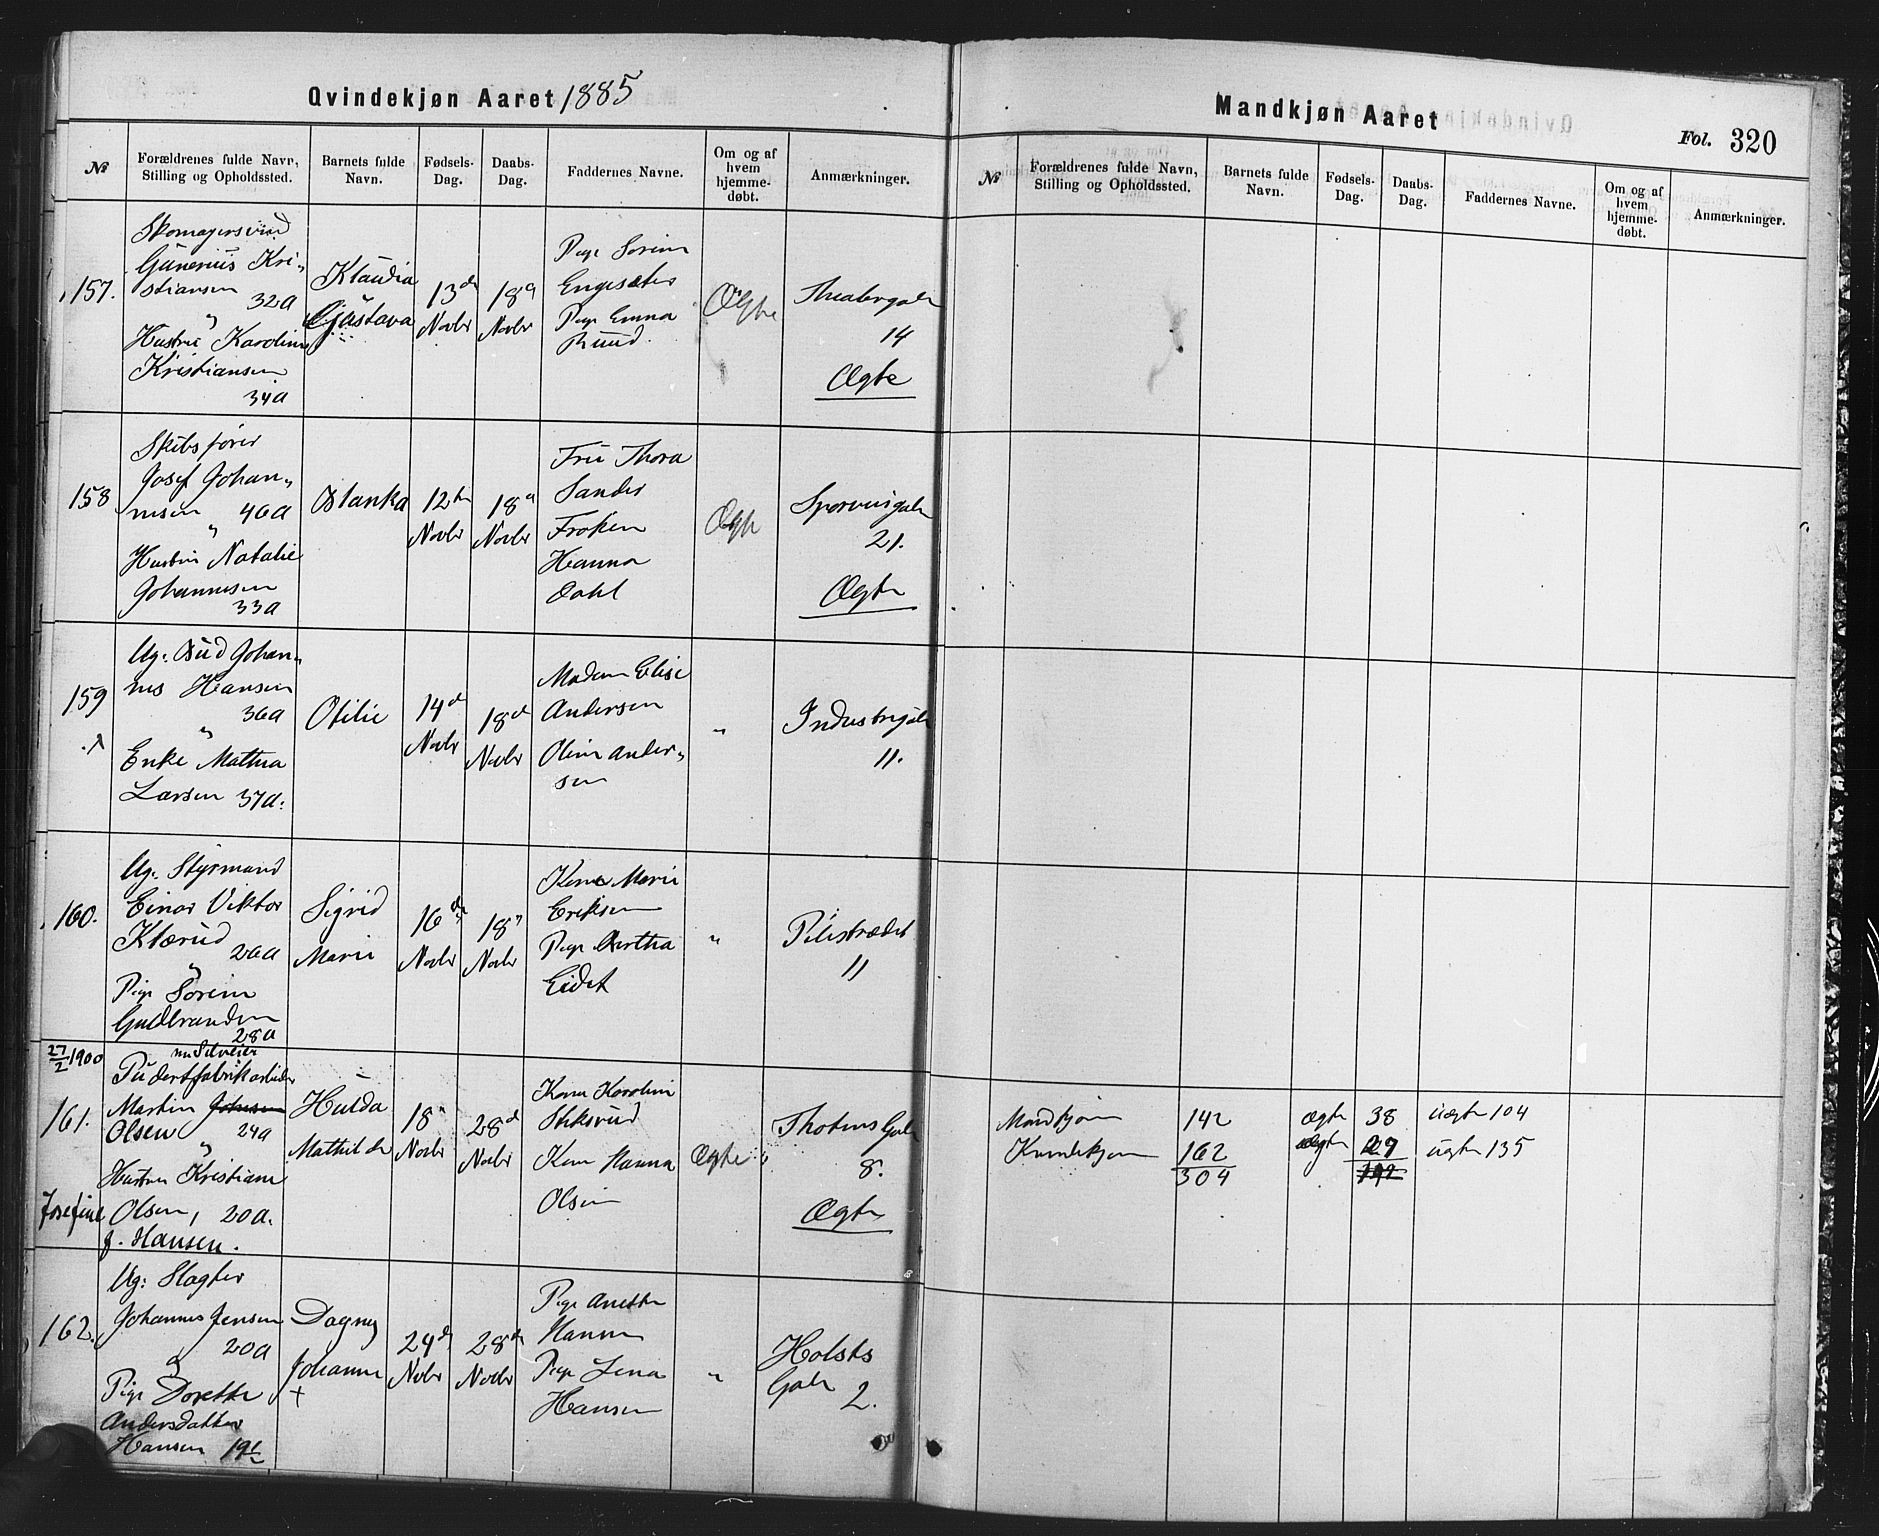 Qvindekjøn Aaret 1885
№
Forældrenes fulde Navn, Stilling og Opholdssted.
Barnets fulde Navn.
Fødsels-Dag.
Daabs-Dag.
Faddernes Navne.
Om og af hvem hjemme-døbt.
Anmærkninger.
157.
Skomagersvend
Gunerius Kri-
stiansen
32a
"
Hustru Karoline
Kristiansen
34a
Klaudia
Gustava
13d
Novbr
18d
Novbr
Pige Sorine
Engesæter
Pige Emma
Ruud.
Ægte
Theatergade
14
Ægte
158
Skibsfører
Josef Johan-
nesen 46a
"
Hustru Natalie
Johannesen
33a
Blanka
12te
Novbr
18d
Novbr
Fru Thora
Sander
Frøken
Hanna
Dahl
Ægte
21.
Ægte
159
Ug: Bud Johan-
nes Hansen
36a
"
Enke Mathea
Larsen 37a.
Otilie
14d
Novbr
18d
Novbr
Madam Elise
Andersen
Oline Ander-
sen
"
Industrigade
11.
160.
Ug: Styrmand
Einar Viktor
Klærud
26a
"
Pige Sorine
Guldbrandsen
28a
Sigrid
Marie
16de
Novbr
18d
Novbr
Kone Marie
Eriksen
Pige Berthа
Eidet
"
Pilestrædet
11
27/2 1900
161.
Pudertfabrikarbeider
Martin Johnsen
Olsen 24a
"
Hustru Kristiane
Josefine
Olsen, 20a.
f. Hansen.
Hulda
Mathilde
18d
Novbr
28d
Novbr
Kone Karoline
Kone Hanna
Olsen
Ægte
8.
Ægte
162.
Ug: Slagter
Johannes Jensen
20a
Pige Dorethe
Andersdatter
Hansen
Dagny
Johanne
+
24d
Novbr
28d
Novbr
Pige Anette
Hansen
Pige Lena
Hansen
"
Holsts
Gade
2.
Mandkjøn Aaret
Fol. 320
№
Forældrenes fulde Navn, Stilling og Opholdssted.
Barnets fulde Navn.
Fødsels-Dag.
Daabs-Dag.
Faddernes Navne.
Om og af hvem hjemme-døbt.
Anmærkninger.
Mandkjøn 142 ægte 38 uægte 104
Kvindekjøn 162 ægte 27 uægte 135
304